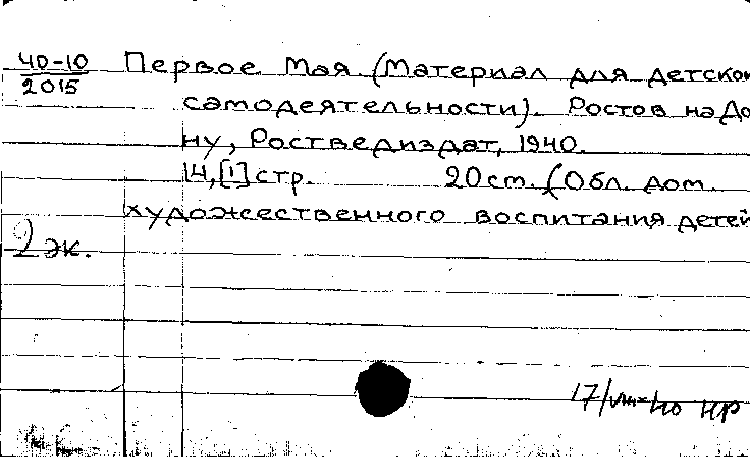 40-10 Первое Мая (Материал для детской
2015 самодеятельности). Ростов на До
ну, Роствediздат, 1940.
14,[1] стр. 20 cm. (Обл. дом.
художественного воспитания детей
2 эк.
17/VIII-40 НР